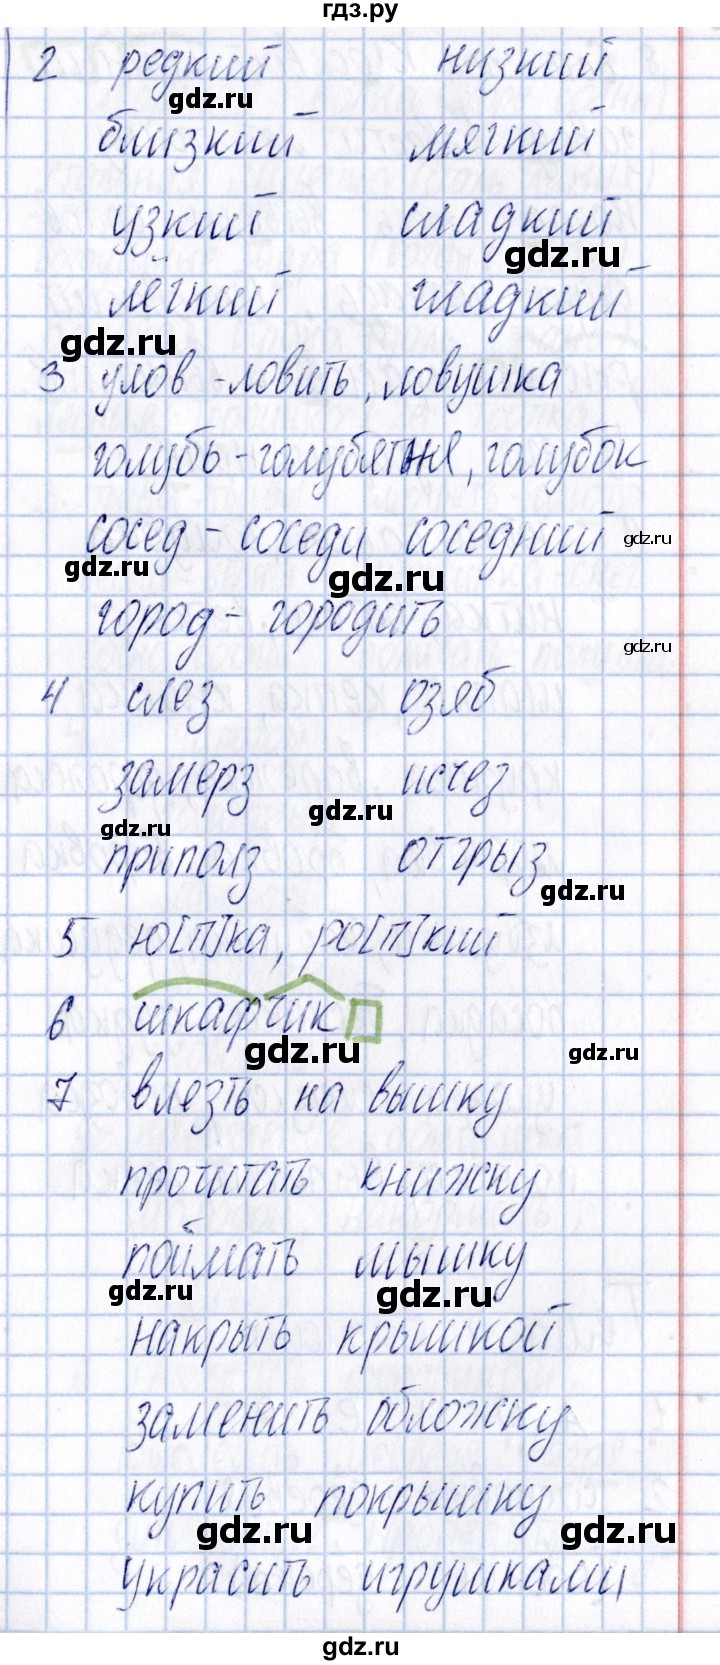 гдз.ру
2 редкий низкий
gdz.ru
близкий мягкий
узкий сладкий
gdz.ru
лёгкий гладкий
gdz.ru
3 улов - ловить, ловушка
голубь - голубятня, голубок
сосед - соседи соседний gdz.ru
gdz.ru gdz.ru
город - городить
gdz.ru
4 слез озяб
замерз исчез
gdz.ru gdz.ru
приполз отгрыз
gdz.ru
5 ю[п]ка, ро[п]кий
6 шкафчик
gdz.ru gdz.ru
7 влезть на вышку
прочитать книжку
поймать мышку
gdz.ru gdz.ru
накрыть крышкой
заменить обложку
купить покрышку
gdz.ru gdz.ru
украсить игрушками
gdz.ru